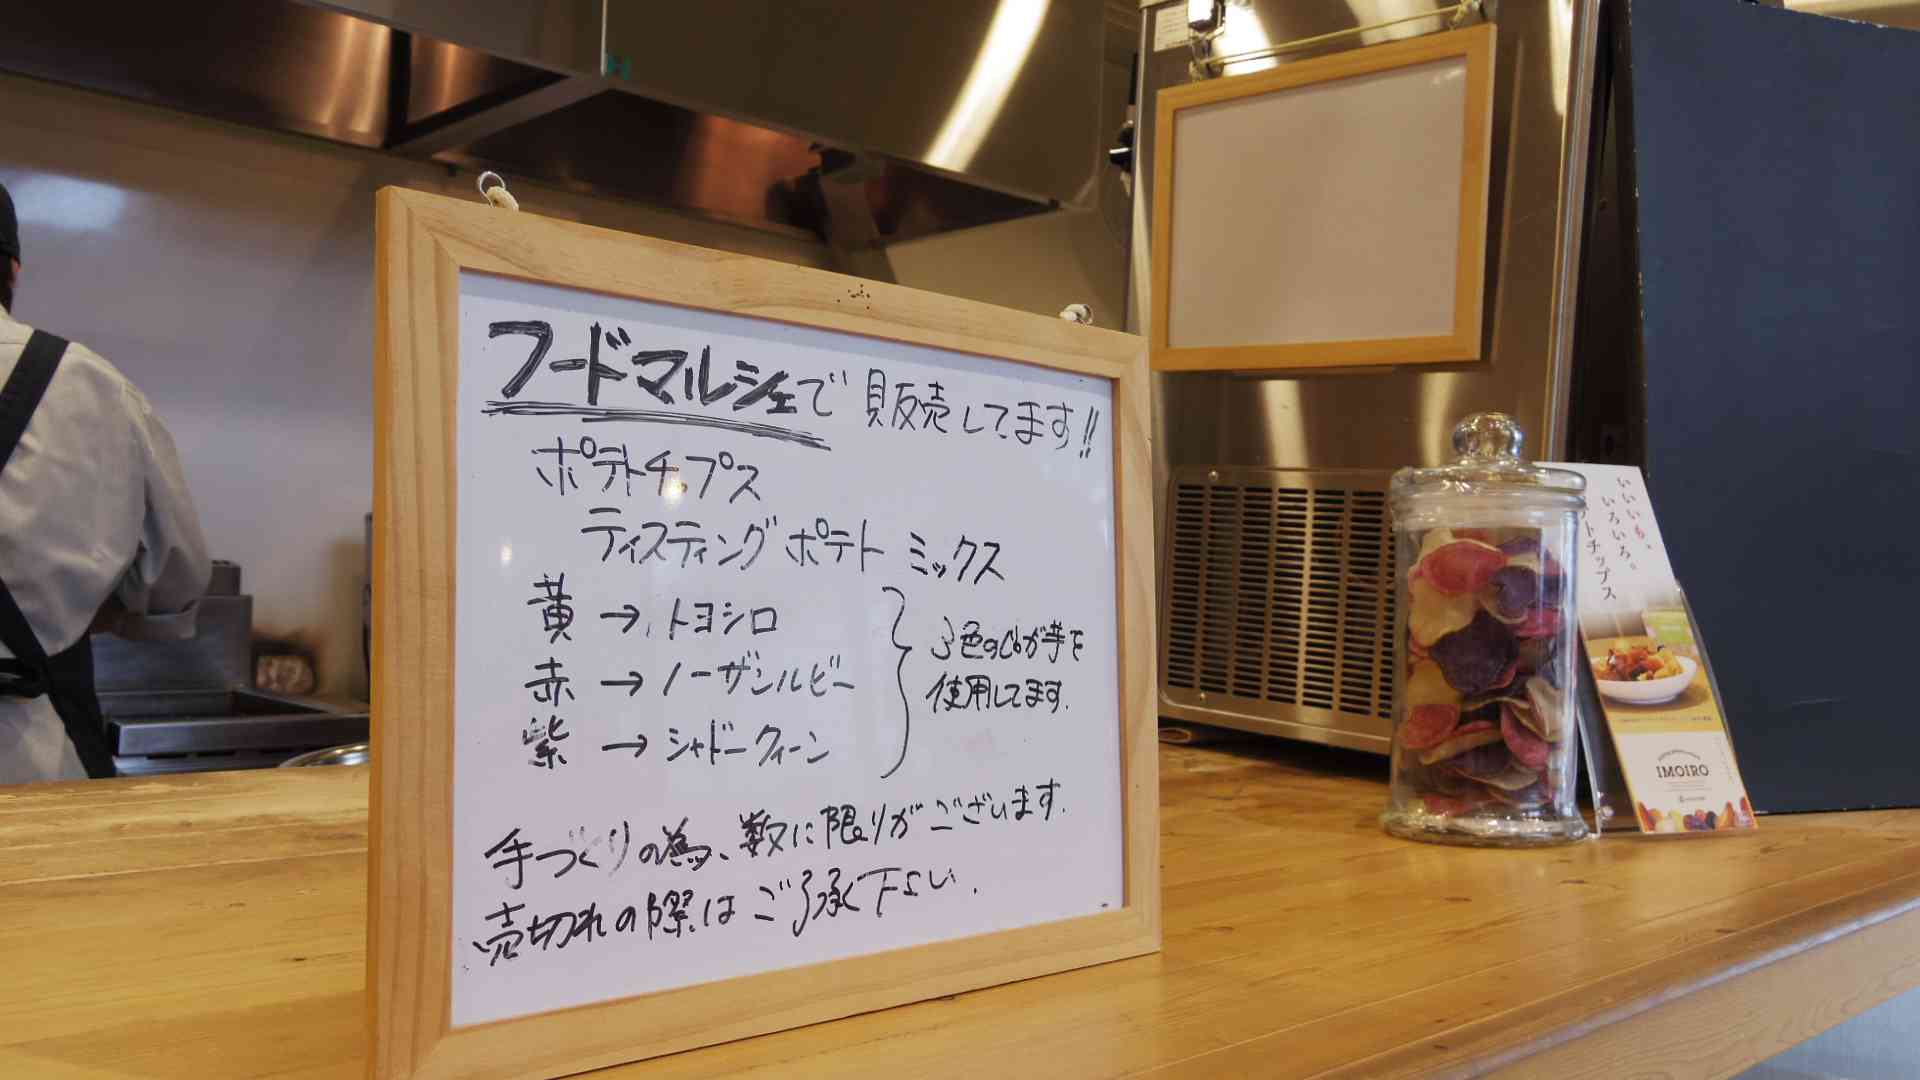 フードマルシェで販売してます!!
ポテトチップス
ティスティングポテトミックス
黄→トヨシロ
赤→ノーザンルビー
紫→シャドークィーン
3色のじゃが芋を
使用してます.
手づくりの為、数に限りがございます.
売切れの際はご了承下さい.
いいいも。
いろいろ。
トチップス
IMOIRO